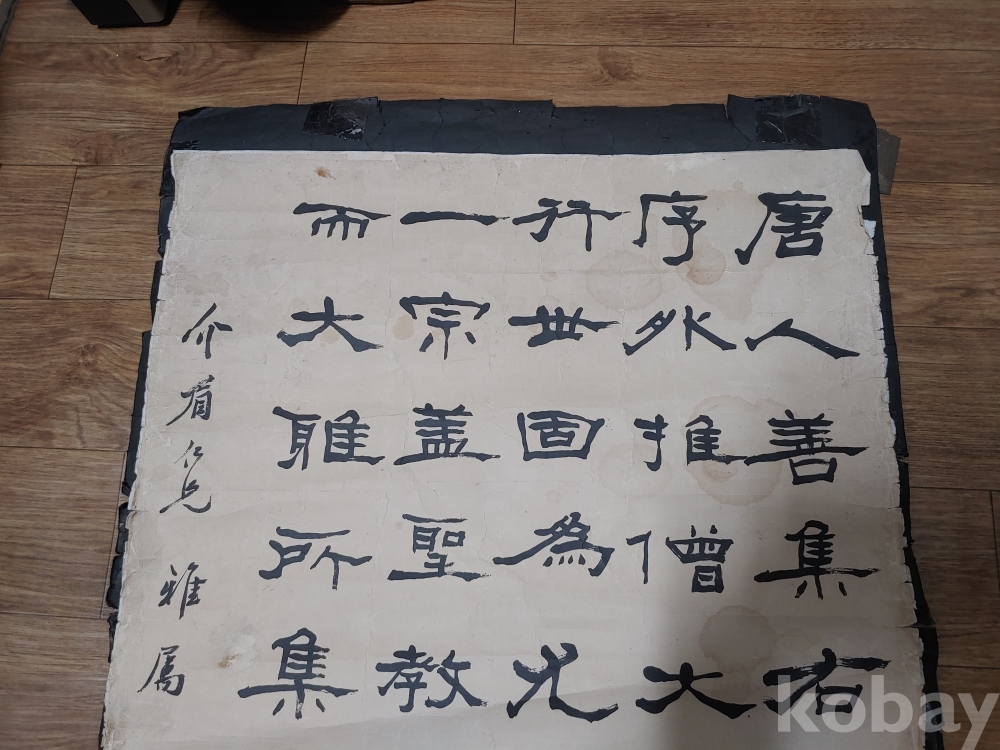 唐人善集右
序外推僧大
行世固為尤
一宗盖聖教
而大雅所集
介眉仁兄 雅属
kobay